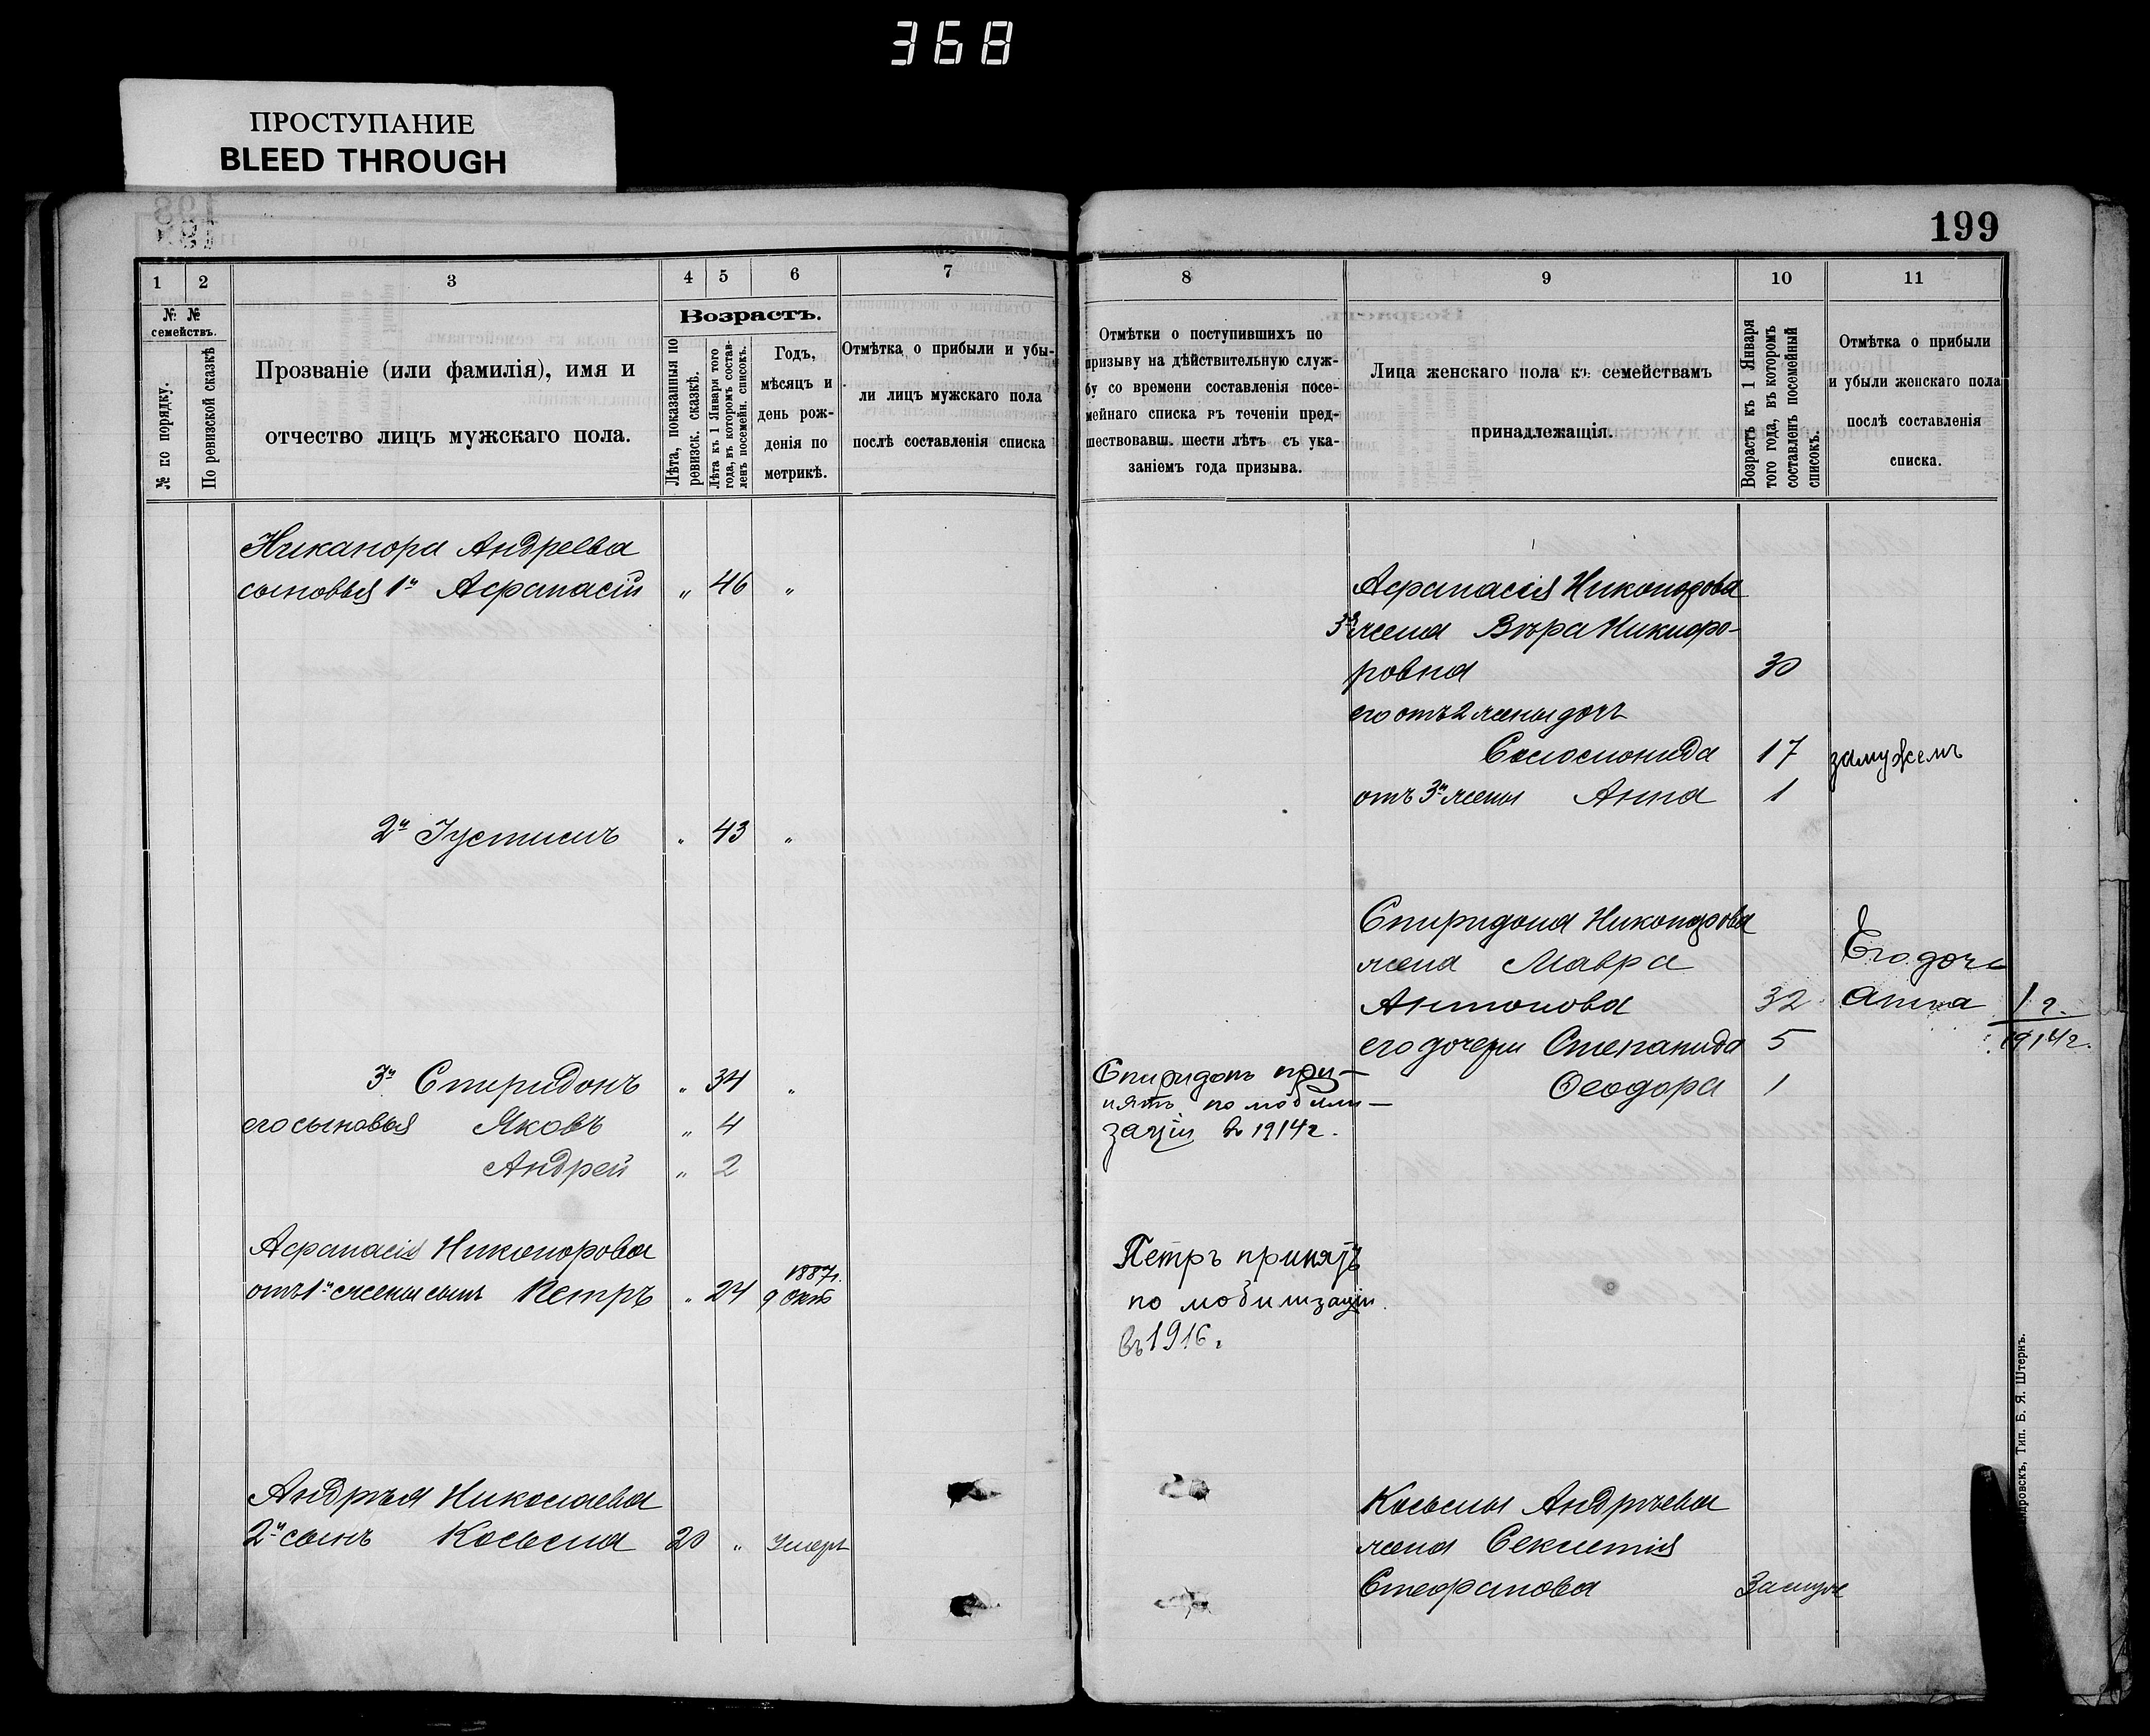 368
ПРОСТУПАНИЕ
BLEED THROUGH
199
1
2
3
4
5
6
7
№ №
семействъ.
№ по порядку.
По ревизской сказкѣ
Прозваніе (или фамилія), имя и
отчество лицъ мужскаго пола.
Возрастъ.
Лѣта, показанныя по
ревизск. сказкѣ.
Лѣта къ 1 Января того
года, въ которомъ состав-
ленъ посемейн. списокъ.
Годъ,
мѣсяцъ и
день рож-
денія по
метрикѣ.
Отмѣтка о прибыли и убы-
ли лицъ мужскаго пола
послѣ составленія списка
Никанора Андреева
сыновья 1й Афанасій „ 46 „
2й Іустинъ „ 43 „
3й Спиридонъ „ 34 „
его сыновья Яковъ „ 4
Андрей „ 2
Афанасія Никонорова
1887г.
отъ 1й жены сынъ Петръ „ 24 9 Окт
Андрѣя Николаева
2й сынъ Косьма 20 „ Умеръ
8
9
10
11
Отмѣтки о поступившихъ по
призыву на дѣйствительную служ-
бу со времени составленія посе-
мейнаго списка въ теченіи пред-
шествовавш. шести лѣтъ съ ука-
заніемъ года призыва.
Лица женскаго пола къ семействамъ
принадлежащія.
Возрастъ къ 1 Января
того года, въ которомъ
составленъ посемейный
списокъ.
Отмѣтка о прибыли
и убыли женскаго пола
послѣ составленія
списка.
Афанасія
3я жена Вѣра Никифо-
ровна 30
его отъ 2 жены дочь
17 замужемъ
отъ 3й жены Анна 1
Спиридона
жена Мавра Его дочь
Антонова 32 Анна 1 г.
его дочери Степанида 5 1914г.
Спиридонъ при-
Ѳеодора 1
нятъ по мобили-
заціи въ 1914г.
Петръ принятъ
по мобилизаціи
въ 1916.
Косьмы Андрѣева
жена
Стефанова Замуж
Тип. Б. Я. Штернъ.